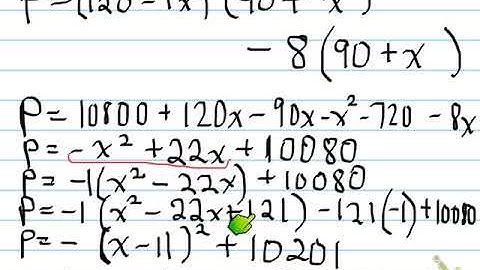 P=(120-1x)(90+ x)
- 8(90+x )
P= 10800 + 120x - 90x - x² - 720 - 8x
P= -x² + 22x + 10080
P= -1(x² - 22x) + 10080
P= -1(x² - 22x+121) - 121(-1) + 10080
P= - (x-11)² + 10201